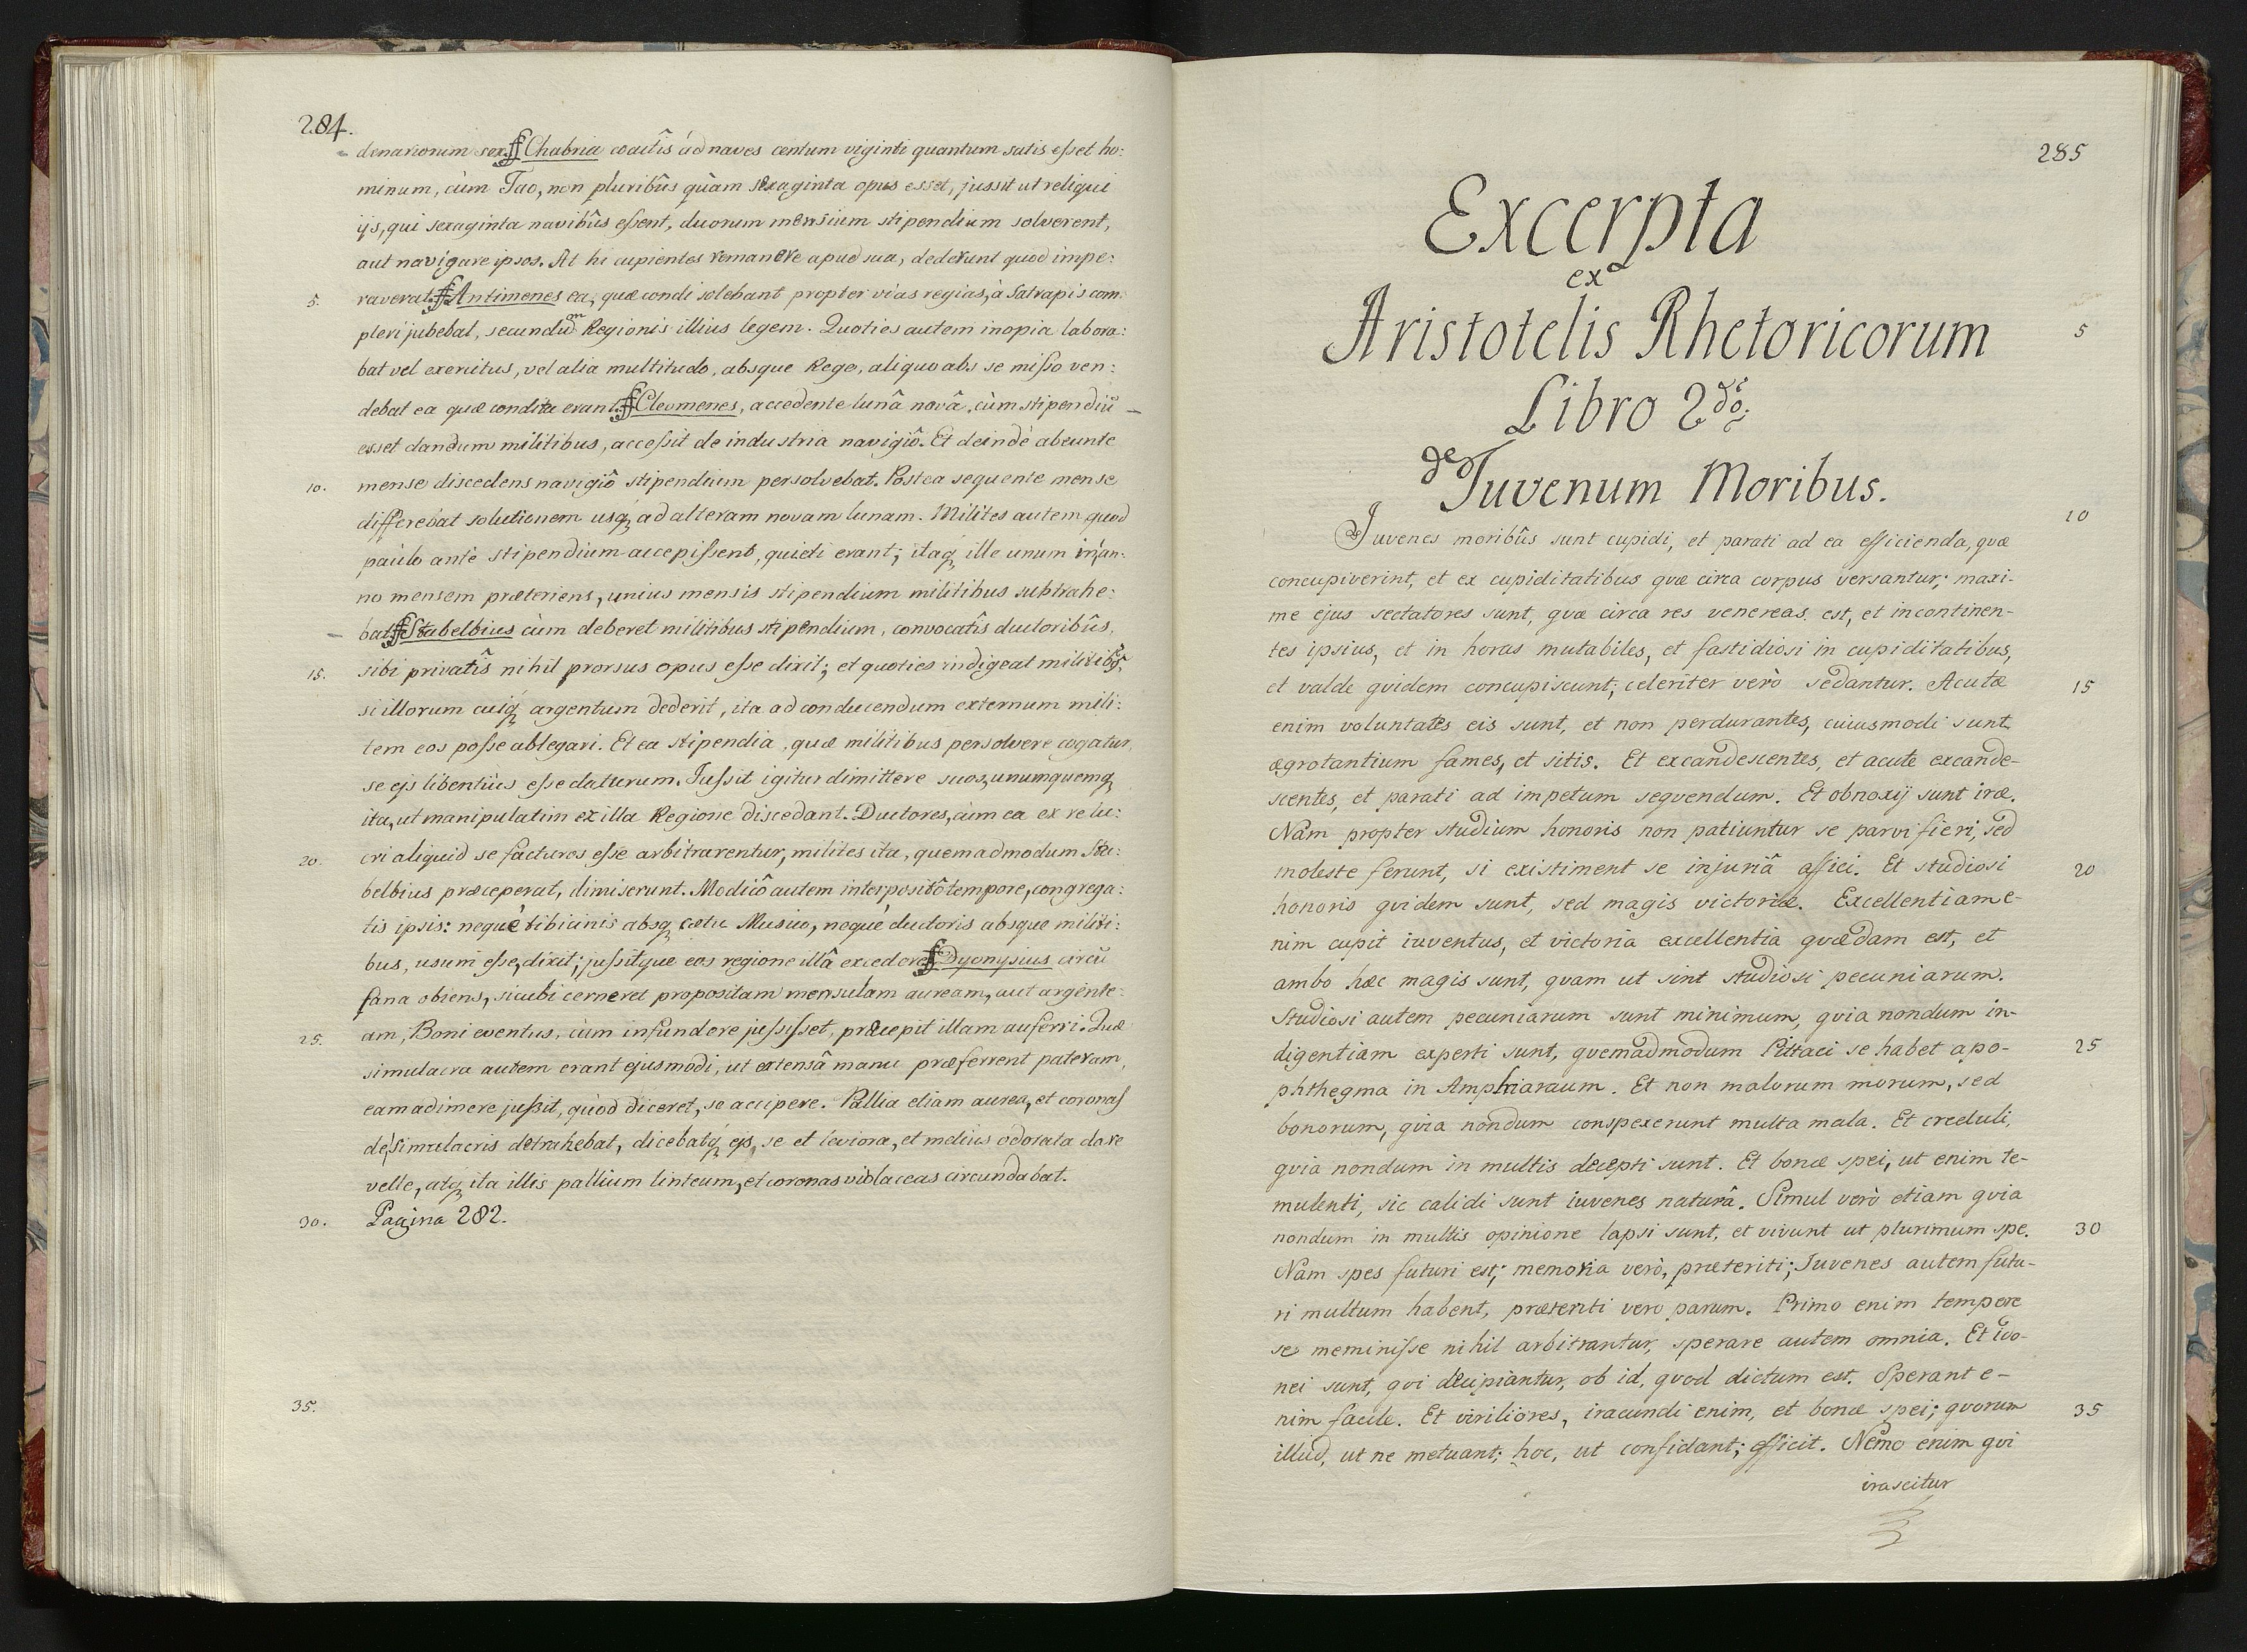 284.
denariorum sex. Chabria coactîs ad naves centum viginti quantum satis esset ho:
minum, cùm Tao, non pluribûs quàm sexaginta opus esset, jussit ut reliqui
ijs, qui sexaginta navibûs essent, duorum mensium stipendium solverent,
aut navigare ipsos. At hi cupientes remanere apud sua, dederunt quod impe:
5. raverat. Antimenes ea, quæ condi solebant propter vias regias, à Satrapis com:
pleri jubebat, secundum Regionis illius legem. Quoties autem inopia labora:
bat vel exercitus, vel alia multitudo, absque Rege, aliquo abs se misso ven:
debat ea quæ condita erant. Cleomenes, accedente lunâ novâ, cùm stipendiũ
esset dandum militibus, accessit de industria navigiô. Et deindè abeunte
10. mense discedens navigiô stipendium persolvebat. Postea sequente mense
differebat solutionem usq; ad alteram novam lunam. Milites autem quod
paulo antè stipendium accepissent, quieti erant; itaq; ille unum in an:
no mensem præteriens, unius mensis stipendium militibus subtrahe:
bat. Stabelbius cùm deberet militibus stipendium, convocatîs ductoribûs,
15. sibi privatîs nihil prorsus opus esse dixit; et quoties indigeat militibus,
si illorum cuiq; argentum dederit, ita ad conducendum externum mili:
tem eos posse ablegari. Et ea stipendia, quæ militibus persolvere cogatur,
se ejs libentiùs esse daturum. Jussit igitur dimittere suos, unumquemq;
ita, ut manipulatim ex illa Regione discedant. Ductores, cùm ea ex re lu:
20. cri aliquid se facturos esse arbitrarentur, milites ita, quemadmodum Sta:
belbius præceperat, dimiserunt. Modicô autem interpositô tempore, congrega:
tis ipsis: nequè tibicinis absq; cætu Musico, nequè ductoris absque militi:
bus, usum esse, dixit; jussitque eos regione illâ excedere. Dyonysius circũ
fana obiens, sicubi cerneret propositam mensulam auream, aut argente:
25. am, Boni eventus, cùm infundere jussisset, præcepit illam auferri. Quæ
simulacra autem erant ejusmodi, ut extensâ manu præferrent pateram,
eam adimere jussit, quòd diceret, se accipere. Pallia etiam aurea, et coronas
de simulacris detrahebat, dicebatq; ejs, se et leviora, et melius odorata dare
velle, atq; ita illis pallium linteum, et coronas violaceas circundabat.
30. Pagina 282.
35.
285
Excerpta
ex
Aristotelis Rhetoricorum
5
Libro 2do:
de Juvenum Moribus.
10
Juvenes moribûs sunt cupidi, et parati ad ea efficienda, qvæ
concupiverint, et ex cupiditatibus qvæ circa corpus versantur; maxi-
me ejus sectatores sunt, qvæ circa res venereas est, et incontinen-
tes ipsius, et in horas mutabiles, et fastidiosi in cupiditatibus,
et valde qvidem concupiscunt; celeriter verò sedantur. Acutæ 15
enim voluntates eis sunt, et non perdurantes, cuiusmodi sunt
ægrotantium fames, et sitis. Et excandescentes, et acute excande-
scentes, et parati ad impetum seqvendum. Et obnoxij sunt iræ.
Nam propter studium honoris non patiuntur se parvi fieri, sed
moleste ferunt, si existiment se injuriâ affici. Et studiosi 20
honoris qvidem sunt, sed magis victoriæ. Excellentiam e-
nim cupit iuventus, et victoria excellentia qvædam est, et
ambo hæc magis sunt, qvam ut sint studiosi pecuniarum.
Studiosi autem pecuniarum sunt minimum, qvia nondum in-
digentiam experti sunt, qvemadmodum Pittaci se habet apo- 25
phthegma in Amphiaraum. Et non malorum morum, sed
bonorum, qvia nondum conspexerunt multa mala. Et creduli,
qvia nondum in multis decepti sunt. Et bonæ spei, ut enim te-
mulenti, sic calidi sunt iuvenes naturâ. Simul verò etiam qvia
nondum in multis opinione lapsi sunt, et vivunt ut plurimum spe. 30
Nam spes futuri est; memoria verò, præteriti; Iuvenes autem futu-
ri multum habent, præteriti vero parum. Primo enim tempore
se meminisse nihil arbitrantur, sperare autem omnia. Et ido-
nei sunt, qvi decipiantur, ob id, qvod dictum est. Sperant e-
nim facile. Et viriliores, iracundi enim, et bonæ spei; qvorum 35
illud, ut ne metuant; hoc, ut confidant; efficit. Nemo enim qvi
irascitur